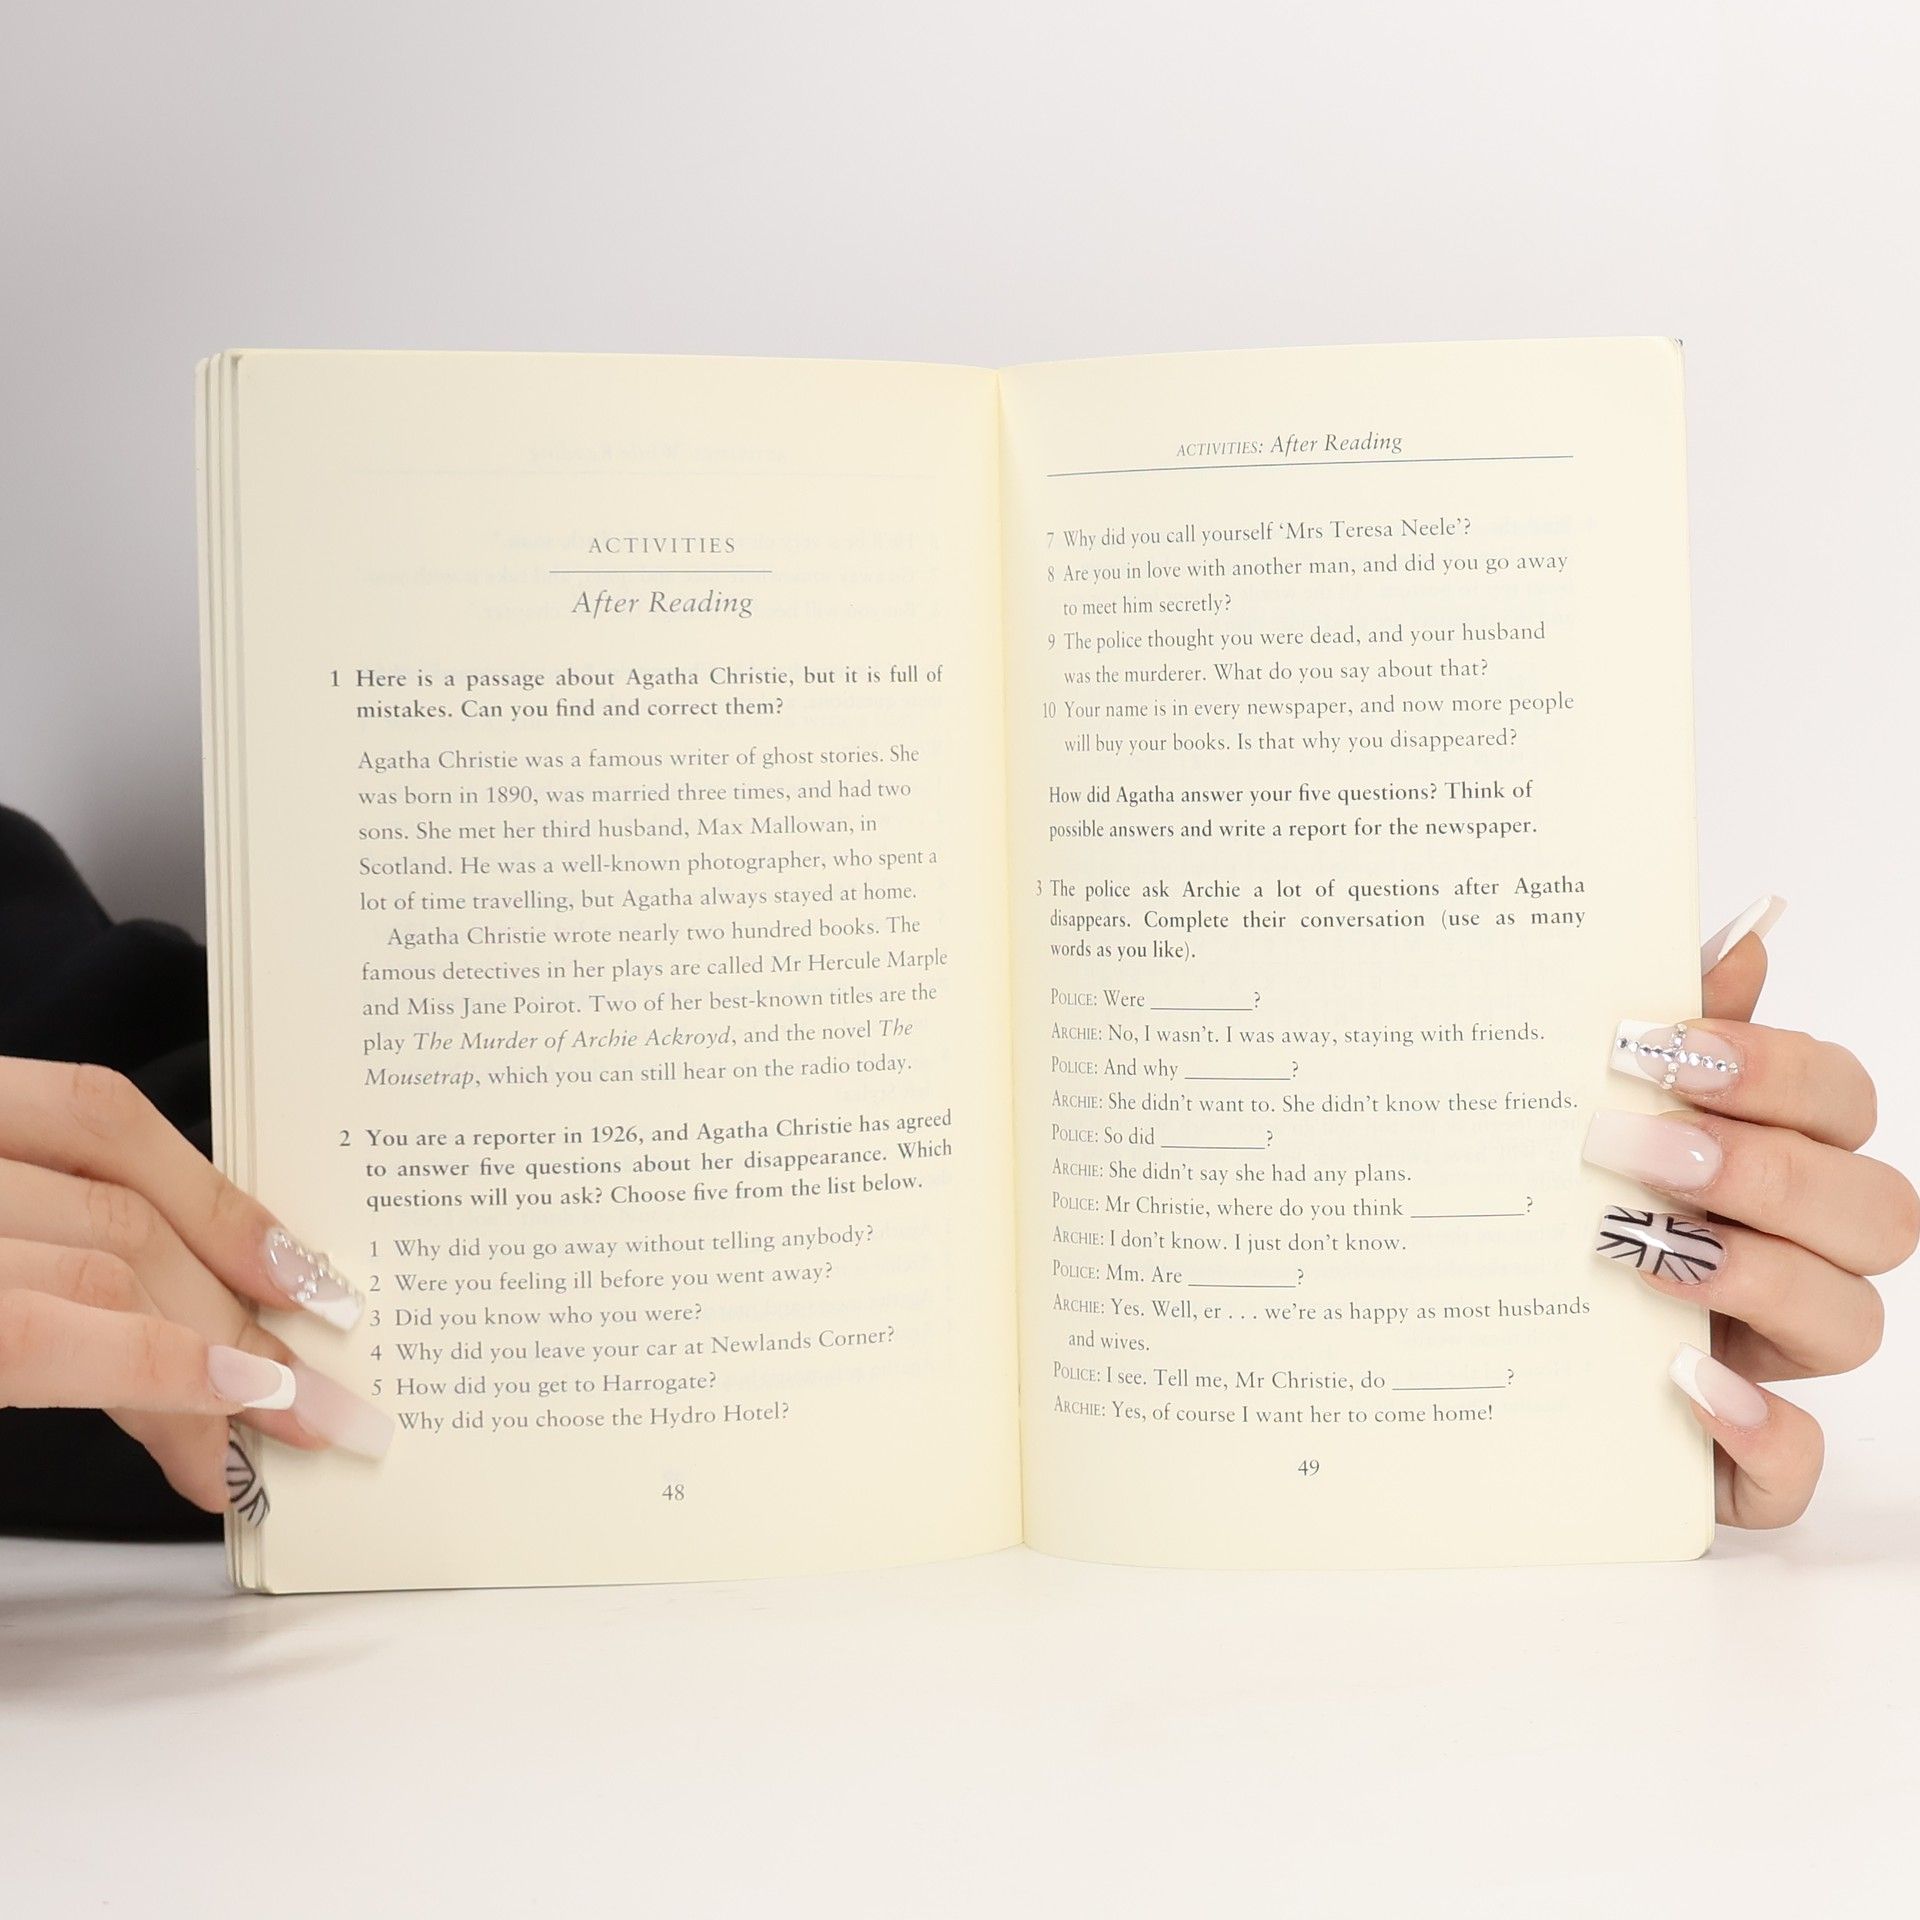 ACTIVITIES
After Reading
1 Here is a passage about Agatha Christie, but it is full of
mistakes. Can you find and correct them?
Agatha Christie was a famous writer of ghost stories. She
was born in 1890, was married three times, and had two
sons. She met her third husband, Max Mallowan, in
Scotland. He was a well-known photographer, who spent a
lot of time travelling, but Agatha always stayed at home.
Agatha Christie wrote nearly two hundred books. The
famous detectives in her plays are called Mr Hercule Marple
and Miss Jane Poirot. Two of her best-known titles are the
play The Murder of Archie Ackroyd, and the novel The
Mousetrap, which you can still hear on the radio today.
2 You are a reporter in 1926, and Agatha Christie has agreed
to answer five questions about her disappearance. Which
questions will you ask? Choose five from the list below.
1 Why did you go away without telling anybody?
2 Were you feeling ill before you went away?
3 Did you know who you were?
4 Why did you leave your car at Newlands Corner?
5 How did you get to Harrogate?
Why did you choose the Hydro Hotel?
48
ACTIVITIES: After Reading
7 Why did you call yourself ‘Mrs Teresa Neele’?
8 Are you in love with another man, and did you go away
to meet him secretly?
9 The police thought you were dead, and your husband
was the murderer. What do you say about that?
10 Your name is in every newspaper, and now more people
will buy your books. Is that why you disappeared?
How did Agatha answer your five questions? Think of
possible answers and write a report for the newspaper.
3 The police ask Archie a lot of questions after Agatha
disappears. Complete their conversation (use as many
words as you like).
POLICE: Were __________?
ARCHIE: No, I wasn't. I was away, staying with friends.
POLICE: And why __________?
ARCHIE: She didn't want to. She didn't know these friends.
POLICE: So did __________?
ARCHIE: She didn't say she had any plans.
POLICE: Mr Christie, where do you think __________?
ARCHIE: I don't know. I just don't know.
POLICE: Mm. Are __________?
ARCHIE: Yes. Well, er . . . we're as happy as most husbands
and wives.
POLICE: I see. Tell me, Mr Christie, do __________?
ARCHIE: Yes, of course I want her to come home!
49